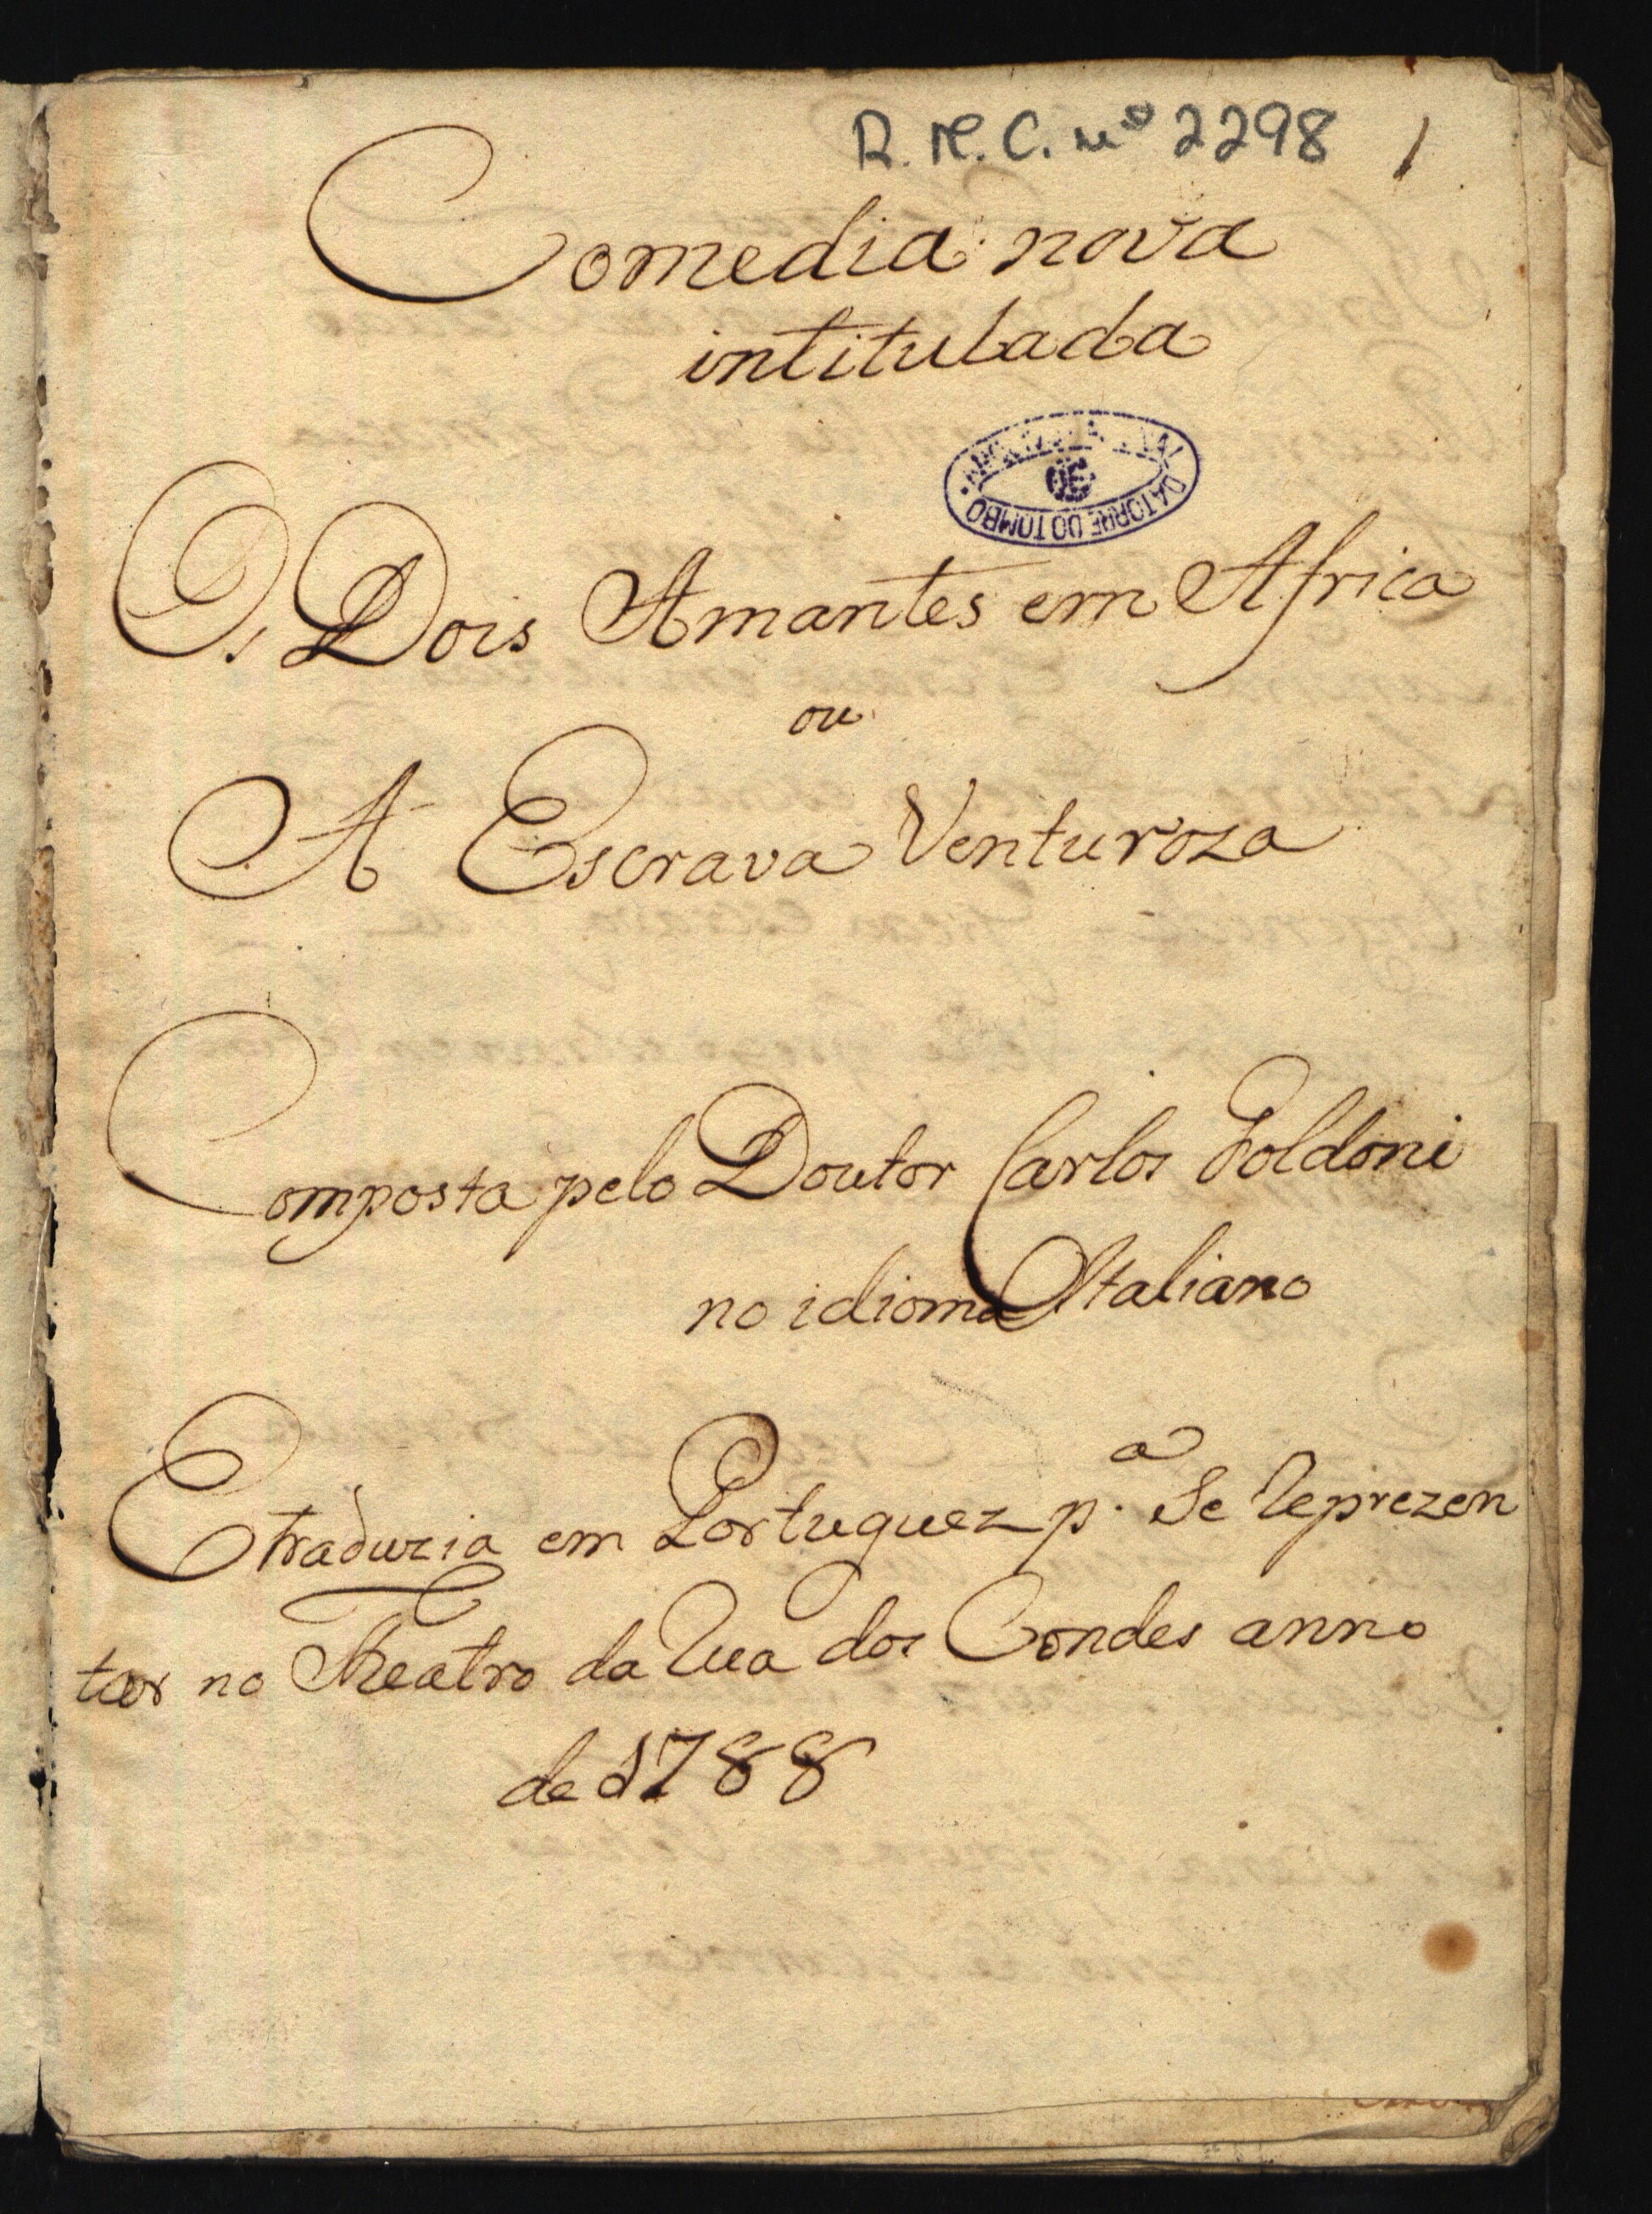 R. M. C. nº 2298 1
Comedia nova
intitulada
ARQUIVO NACIONAL DA TORRE DO TOMBO
Os Dois Amantes em Africa
ou
A Escrava Venturoza
Composta pelo Doutor Carlos Goldoni
no idioma Italiano
E traduzia em Portuguez p.ª Se Reprezen
tar no Theatro da Rua dos Condes anno
de 1788